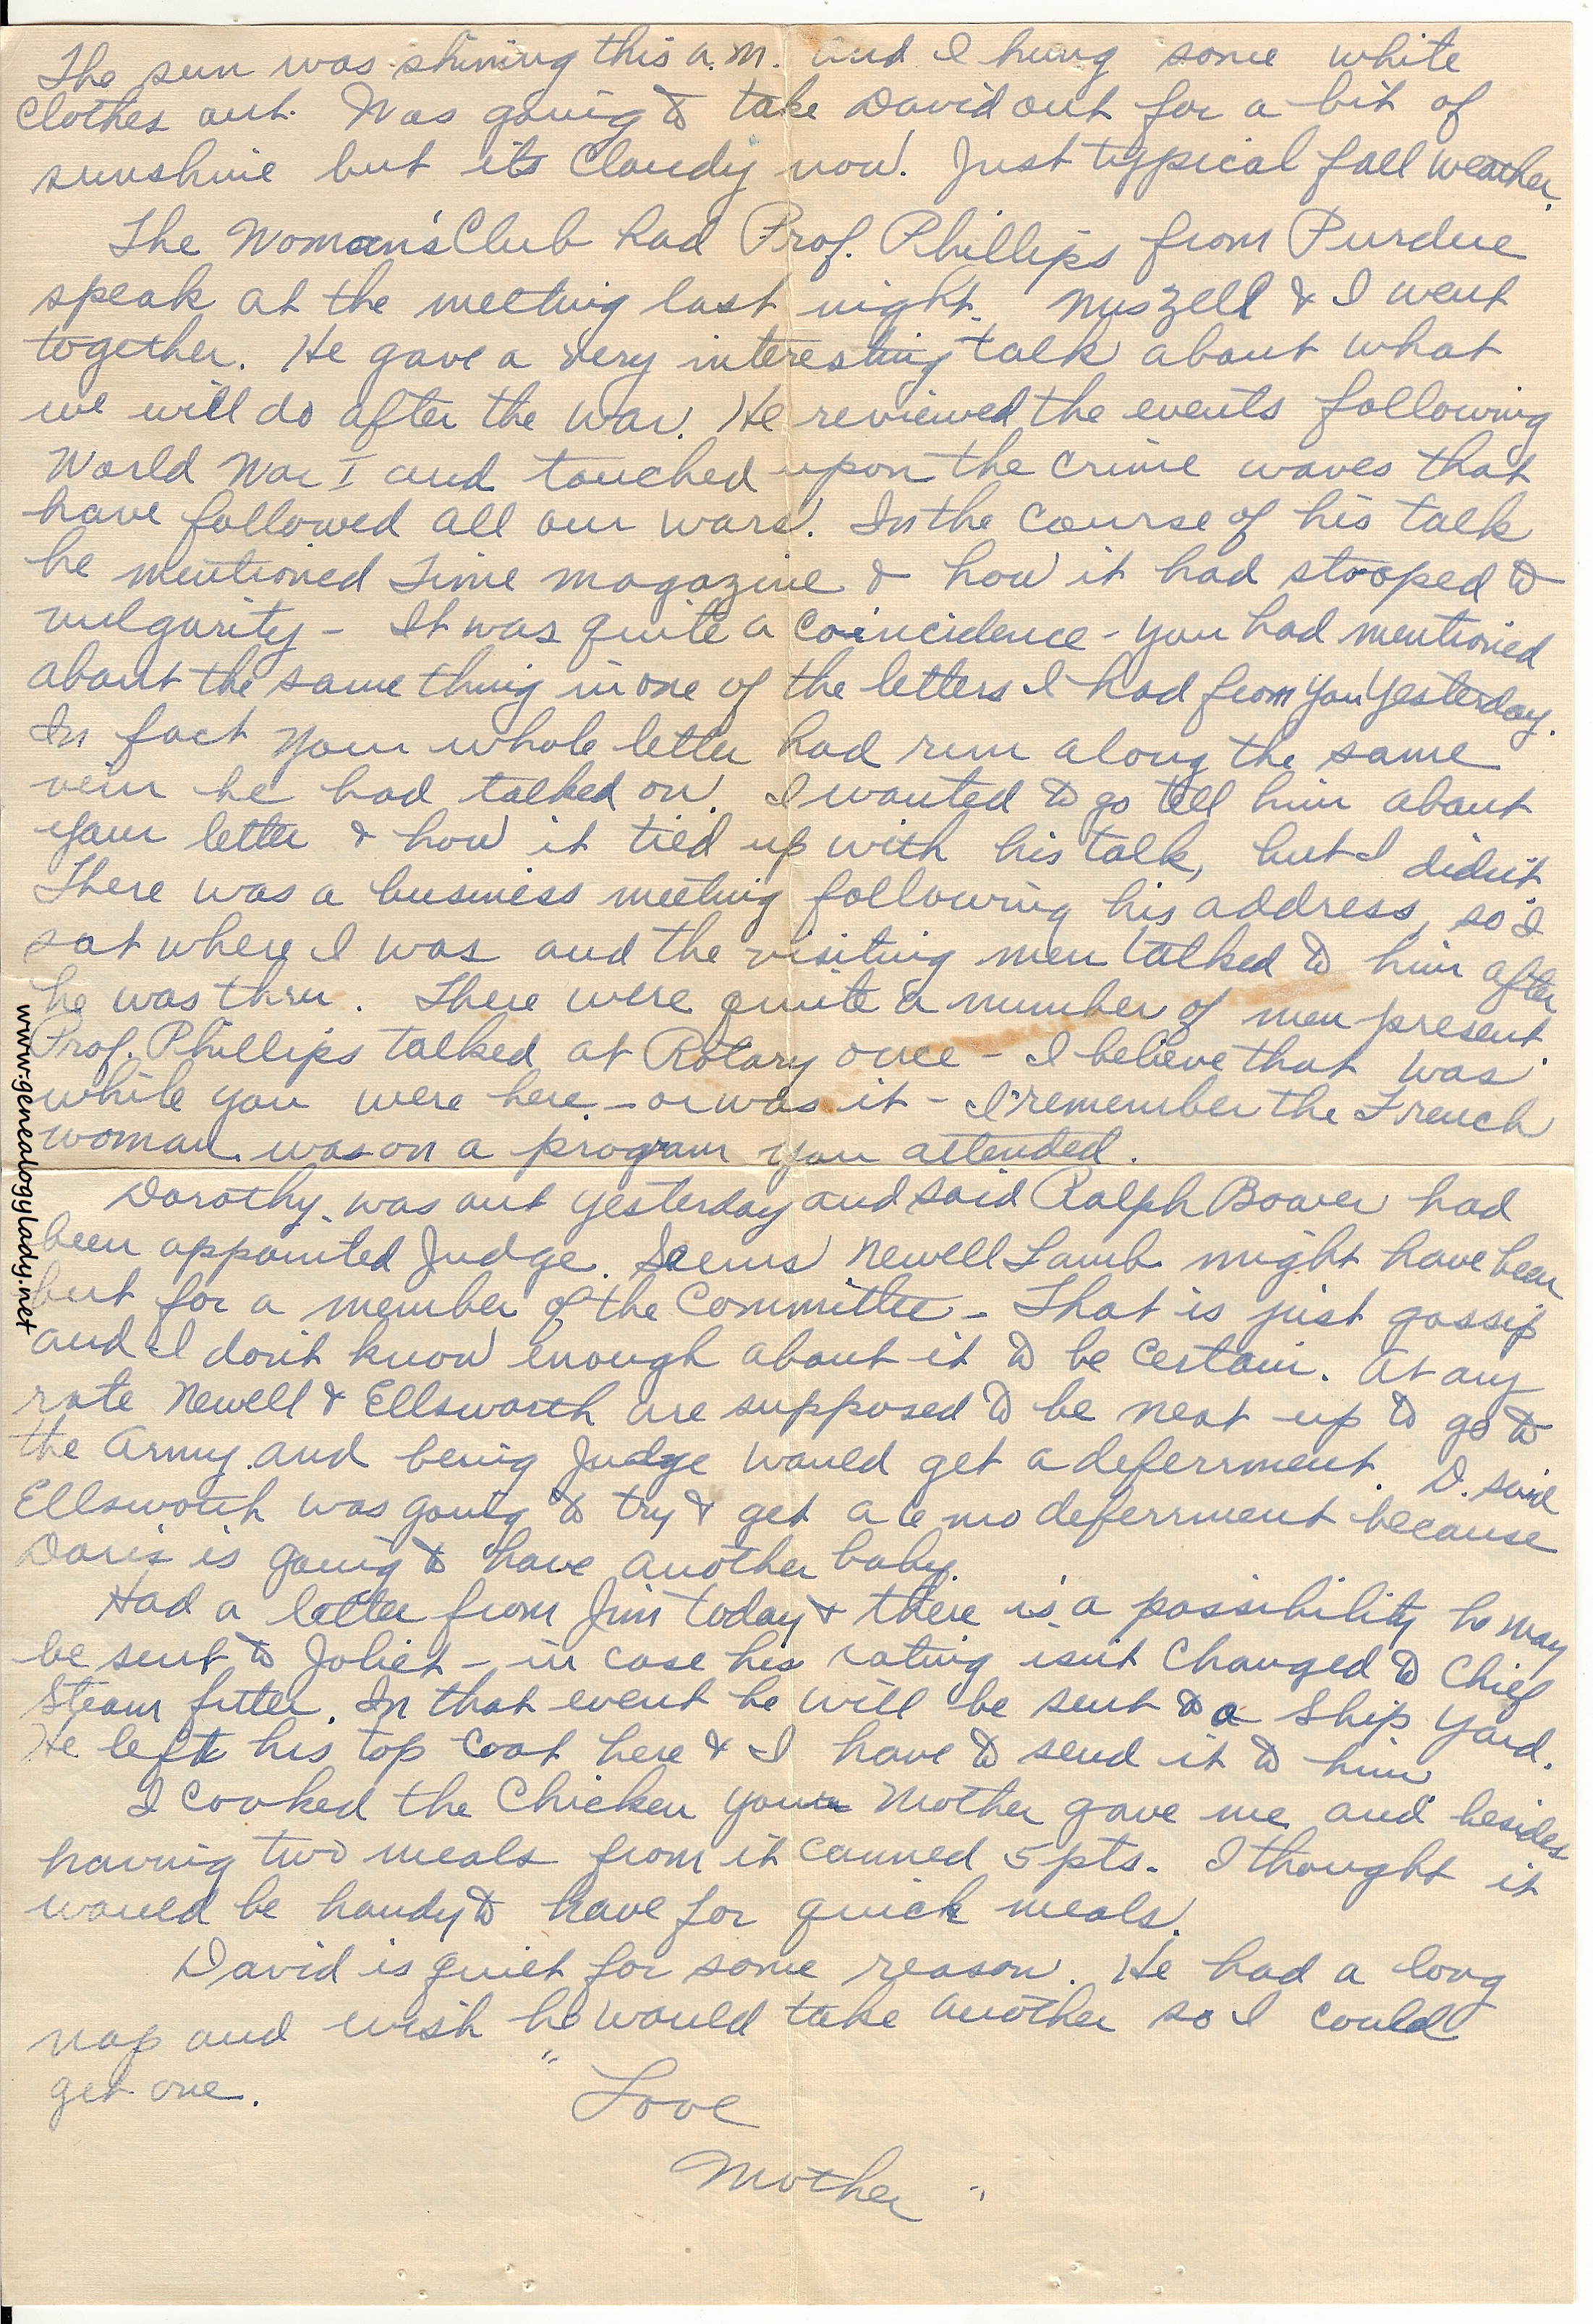 The sun was shining this a.m. and I hung some white
clothes out. Was going to take David out for a bit of
sunshine but its cloudy now. Just typical fall weather.
The Woman's Club had Prof. Phillips from Purdue
speak at the meeting last night. & I went
together. He gave a very interesting talk about what
we will do after the war. He reviewed the events following
World War I and touched upon the crime waves that
have followed all our wars. In the course of his talk
he mentioned Time magazine & how it had stooped to
vulgarity - It was quite a coincidence - you had mentioned
about the same thing in one of the letters I had from you yesterday.
In fact your whole letter had run along the same
vein he had talked on. I wanted to go tell him about
your letter & how it tied up with his talk, but I didn't
There was a business meeting following his address, so I
sat where I was and the visiting men talked to him after
he was thru. There were quite a number of men present.
Prof. Phillips talked at Rotary once - I believe that was
while you were here - or was it - I remember the French
woman was on a program you attended.
Dorothy was out yesterday and said Ralph Bower had
been appointed Judge. Seems Newell Lamb might have been
but for a member of the Committee - That is just gossip
and I don't know enough about it to be certain. At any
rate Newell & Ellsworth are supposed to be next up to go to
the Army and being Judge would get a deferrment. D. said
Ellsworth was going to try & get a 6 mo deferrment because
Doris is going to have another baby.
Had a letter from Jim today & there is a possibility he may
be sent to Joliet - in case his rating isn't changed to Chief
Steam fitter. In that event he will be sent to a Ship Yard.
He left his top coat here & I have to send it to him
I cooked the chicken your Mother gave me and besides
having two meals from it canned 5 pts. I thought it
would be handy to have for quick meals.
David is quiet for some reason. He had a long
nap and wish he would take another so I could
get one.
"Love
Mother"
www.genealogylady.net